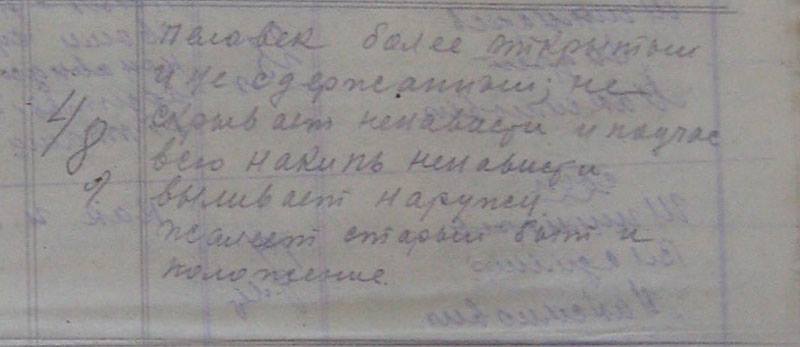 человек более открытый
и не сдержанный; не
скрывает ненависти и подчас
4/8
всю накипь ненависти
выливает наружу
жалеет старый быт и
положение.